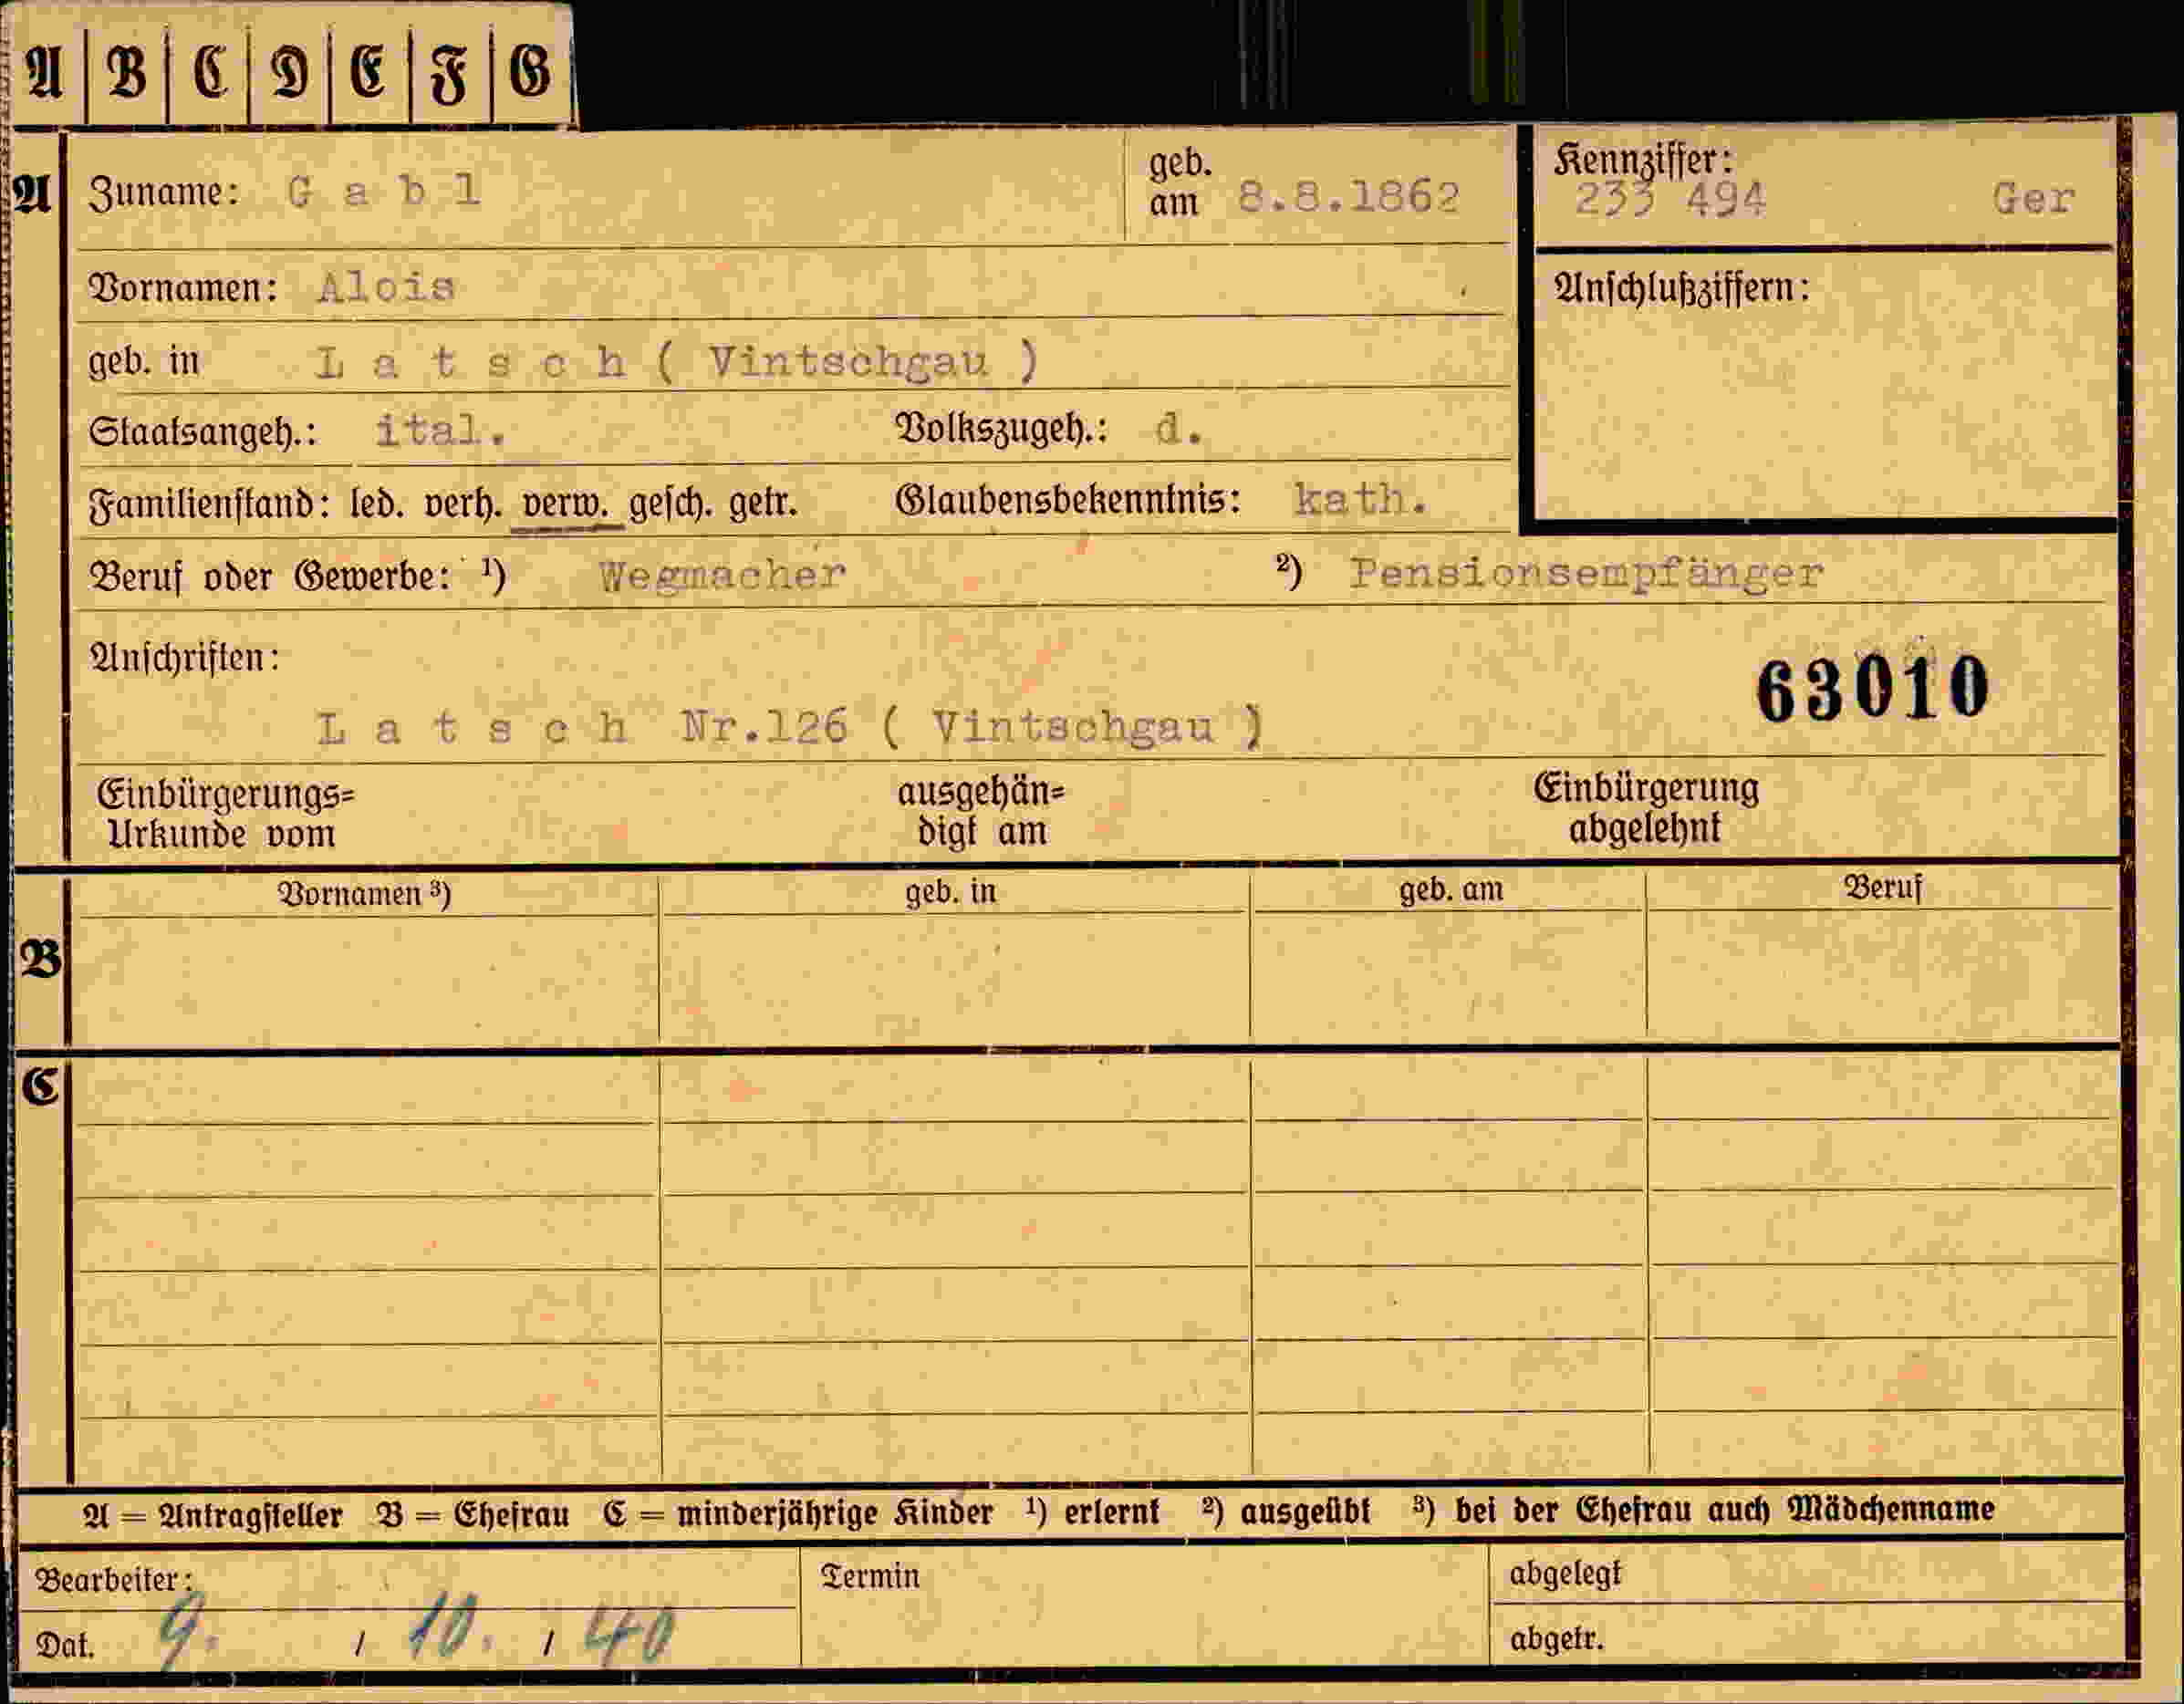 A B C D E F G
A Zuname: G a b l geb. am 8.8.1862 Kennziffer: 233 494 Ger
Vornamen: Alois Anschlußziffern:
geb. in L a t s c h ( Vintschgau )
Staatsangeh.: ital. Volkszugeh.: d.
Familienstand: led. verh. verw. gesch. getr. Glaubensbekenntnis: kath.
Beruf oder Gewerbe: ¹) Wegmacher ²) Pensionsempfänger
Anschriften:
63010
L a t s c h Nr.126 ( Vintschgau )
Einbürgerungs= ausgehän= Einbürgerung
Urkunde vom digt am abgelehnt
Vornamen ³) geb. in geb. am Beruf
B
C
A = Antragsteller B = Ehefrau C = minderjährige Kinder ¹) erlernt ²) ausgeübt ³) bei der Ehefrau auch Mädchenname
Bearbeiter: Termin abgelegt
Dat. 9. / 10. / 40 abgetr.